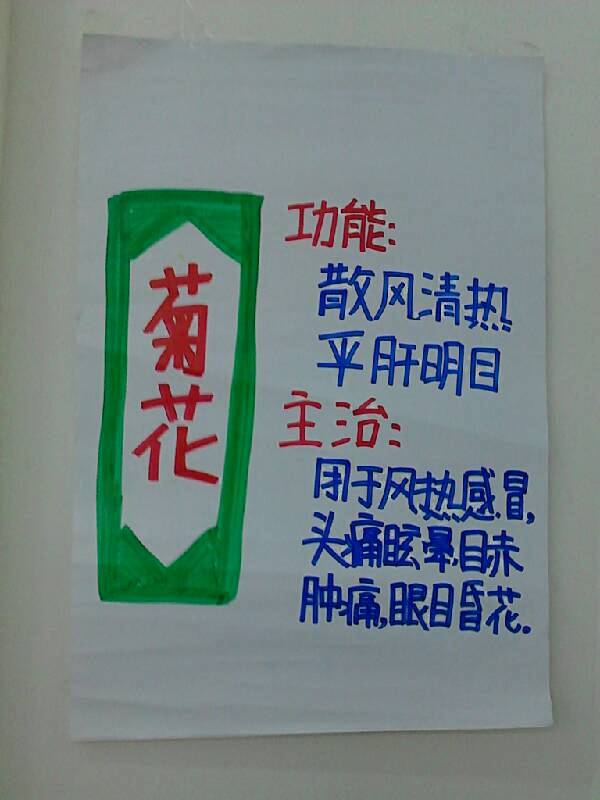 菊花
功能:
散风清热
平肝明目
主治:
闭于风热感冒,
头痛眩晕,目赤
肿痛,眼目昏花.